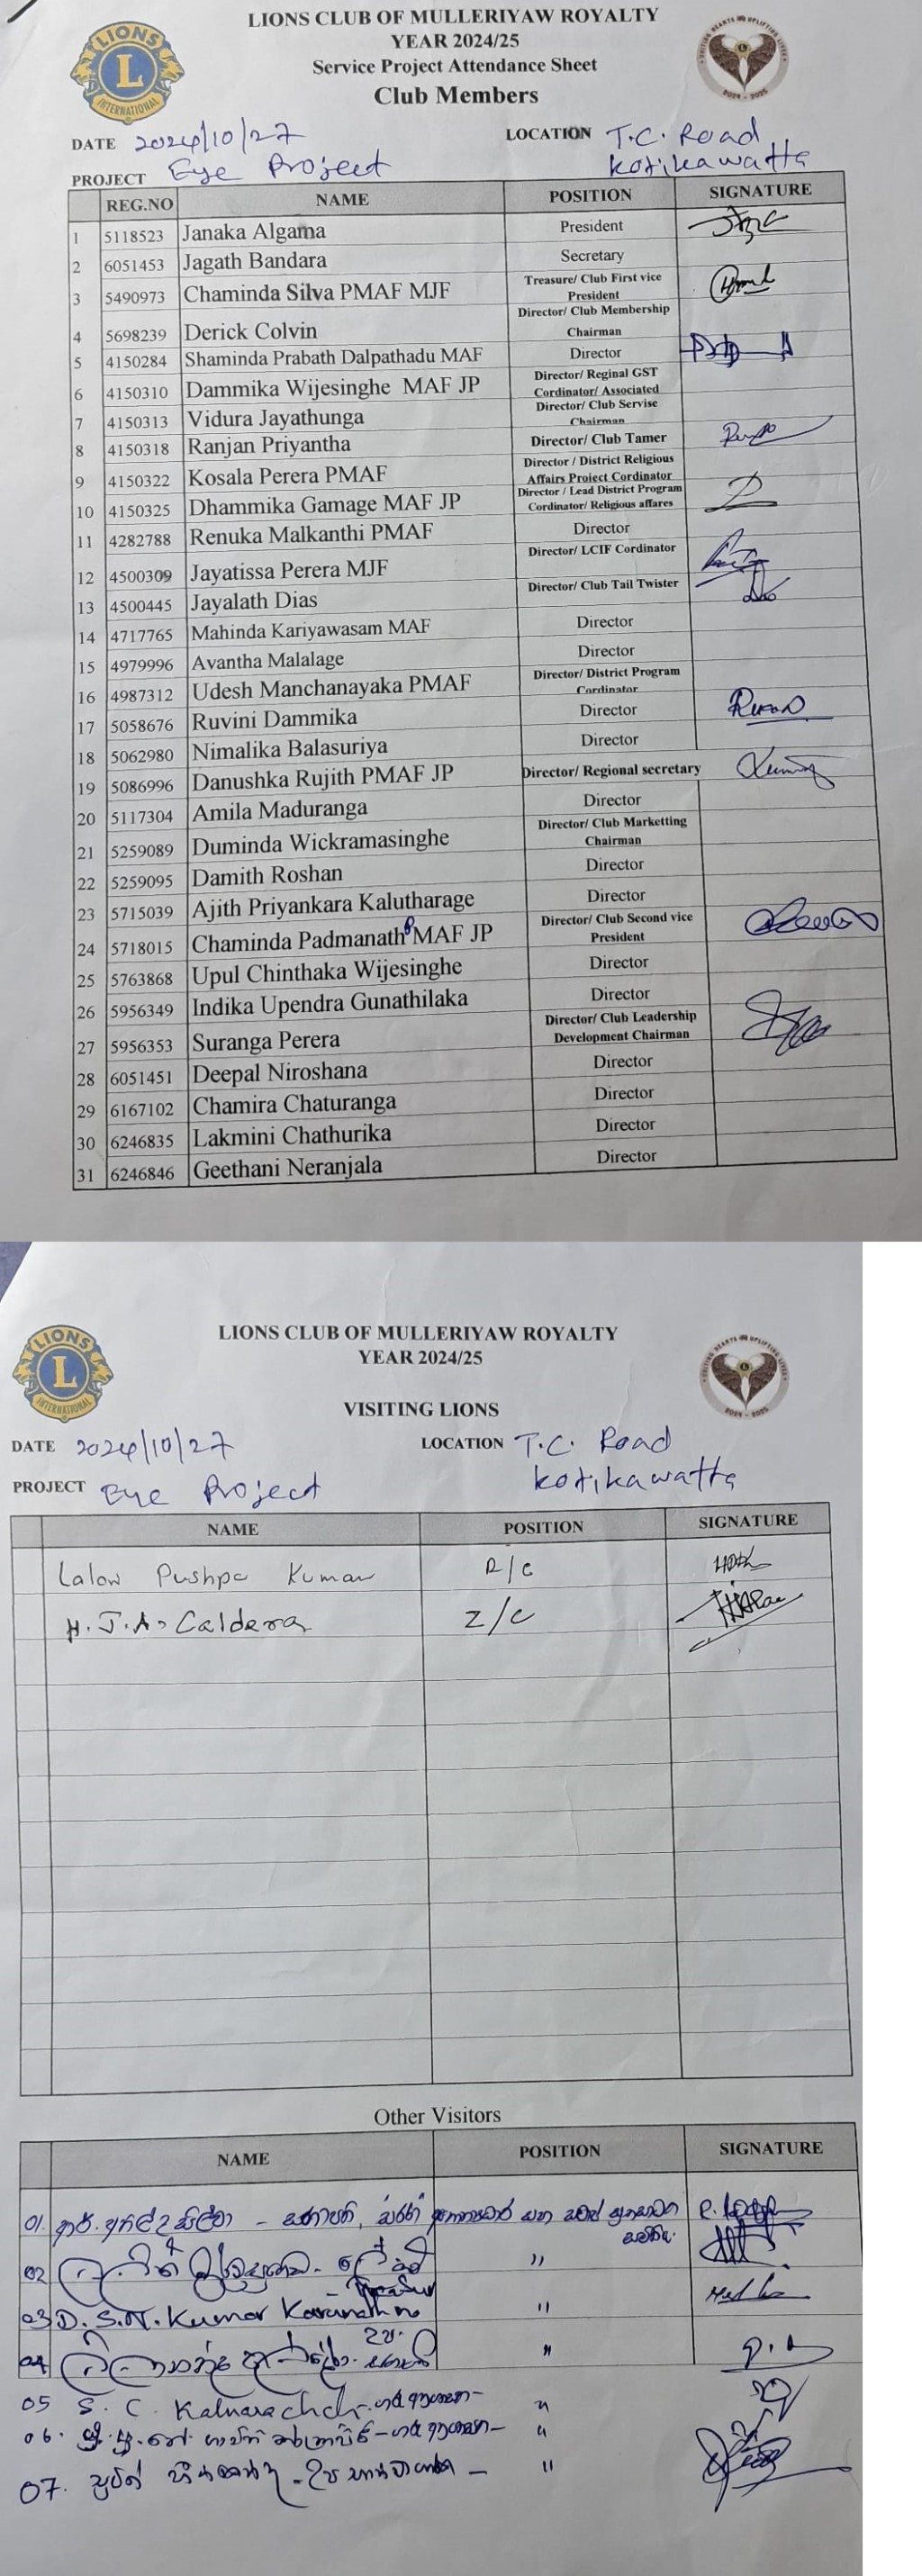 LIONS CLUB OF MULLERIYAW ROYALTY
YEAR 2024/25
Service Project Attendance Sheet
Club Members
LIONS
L
INTERNATIONAL
2024 - 2025
DATE 2024/10/27 LOCATION T.C. Road
PROJECT Eye Project Kotikawatta
REG.NO NAME POSITION SIGNATURE
1 5118523 Janaka Algama President
2 6051453 Jagath Bandara Secretary
3 5490973 Chaminda Silva PMAF MJF Treasure/ Club First vice President
4 5698239 Derick Colvin Director/ Club Membership Chairman
5 4150284 Shaminda Prabath Dalpathadu MAF Director
6 4150310 Dammika Wijesinghe MAF JP Director/ Reginal GST Cordinator/ Associated
7 4150313 Vidura Jayathunga Director/ Club Servise Chairman
8 4150318 Ranjan Priyantha Director/ Club Tamer
9 4150322 Kosala Perera PMAF Director / District Religious Affairs Project Cordinator
10 4150325 Dhammika Gamage MAF JP Director / Lead District Program Cordinator/ Religious affares
11 4282788 Renuka Malkanthi PMAF Director
12 4500309 Jayatissa Perera MJF Director/ LCIF Cordinator
13 4500445 Jayalath Dias Director/ Club Tail Twister
14 4717765 Mahinda Kariyawasam MAF Director
15 4979996 Avantha Malalage Director
16 4987312 Udesh Manchanayaka PMAF Director/ District Program Cordinator
17 5058676 Ruvini Dammika Director
18 5062980 Nimalika Balasuriya Director
19 5086996 Danushka Rujith PMAF JP Director/ Regional secretary
20 5117304 Amila Maduranga Director
21 5259089 Duminda Wickramasinghe Director/ Club Marketting Chairman
22 5259095 Damith Roshan Director
23 5715039 Ajith Priyankara Kalutharage Director
24 5718015 Chaminda Padmanath MAF JP Director/ Club Second vice President
25 5763868 Upul Chinthaka Wijesinghe Director
26 5956349 Indika Upendra Gunathilaka Director
27 5956353 Suranga Perera Director/ Club Leadership Development Chairman
28 6051451 Deepal Niroshana Director
29 6167102 Chamira Chaturanga Director
30 6246835 Lakmini Chathurika Director
31 6246846 Geethani Neranjala Director
LIONS CLUB OF MULLERIYAW ROYALTY
YEAR 2024/25
LIONS
L
INTERNATIONAL
2024 - 2025
VISITING LIONS
DATE 2024/10/27 LOCATION T.C. Road
PROJECT Eye Project Kotikawatta
NAME POSITION SIGNATURE
Lalow Pushpa Kumar R/C
H. J. A. Caldera Z/C
Other Visitors
NAME POSITION SIGNATURE
01.
02 "
03 D. S. N. Kumar Karunathna "
04 "
05 S. C. "
06. "
07. "